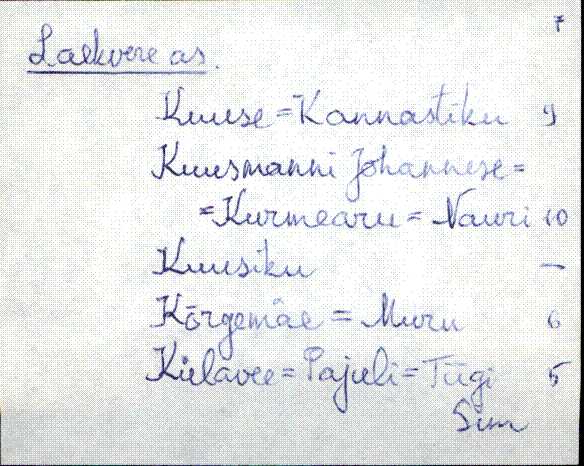 7
Laekvere as.
Kuuse = Kannastiku 9
Kuusmanni Johannese =
= Kurmearu = Nauri 10
Kuusiku —
Kõrgemäe = Muru 6
Külavee = Pajuli = Tiigi 5
Sim